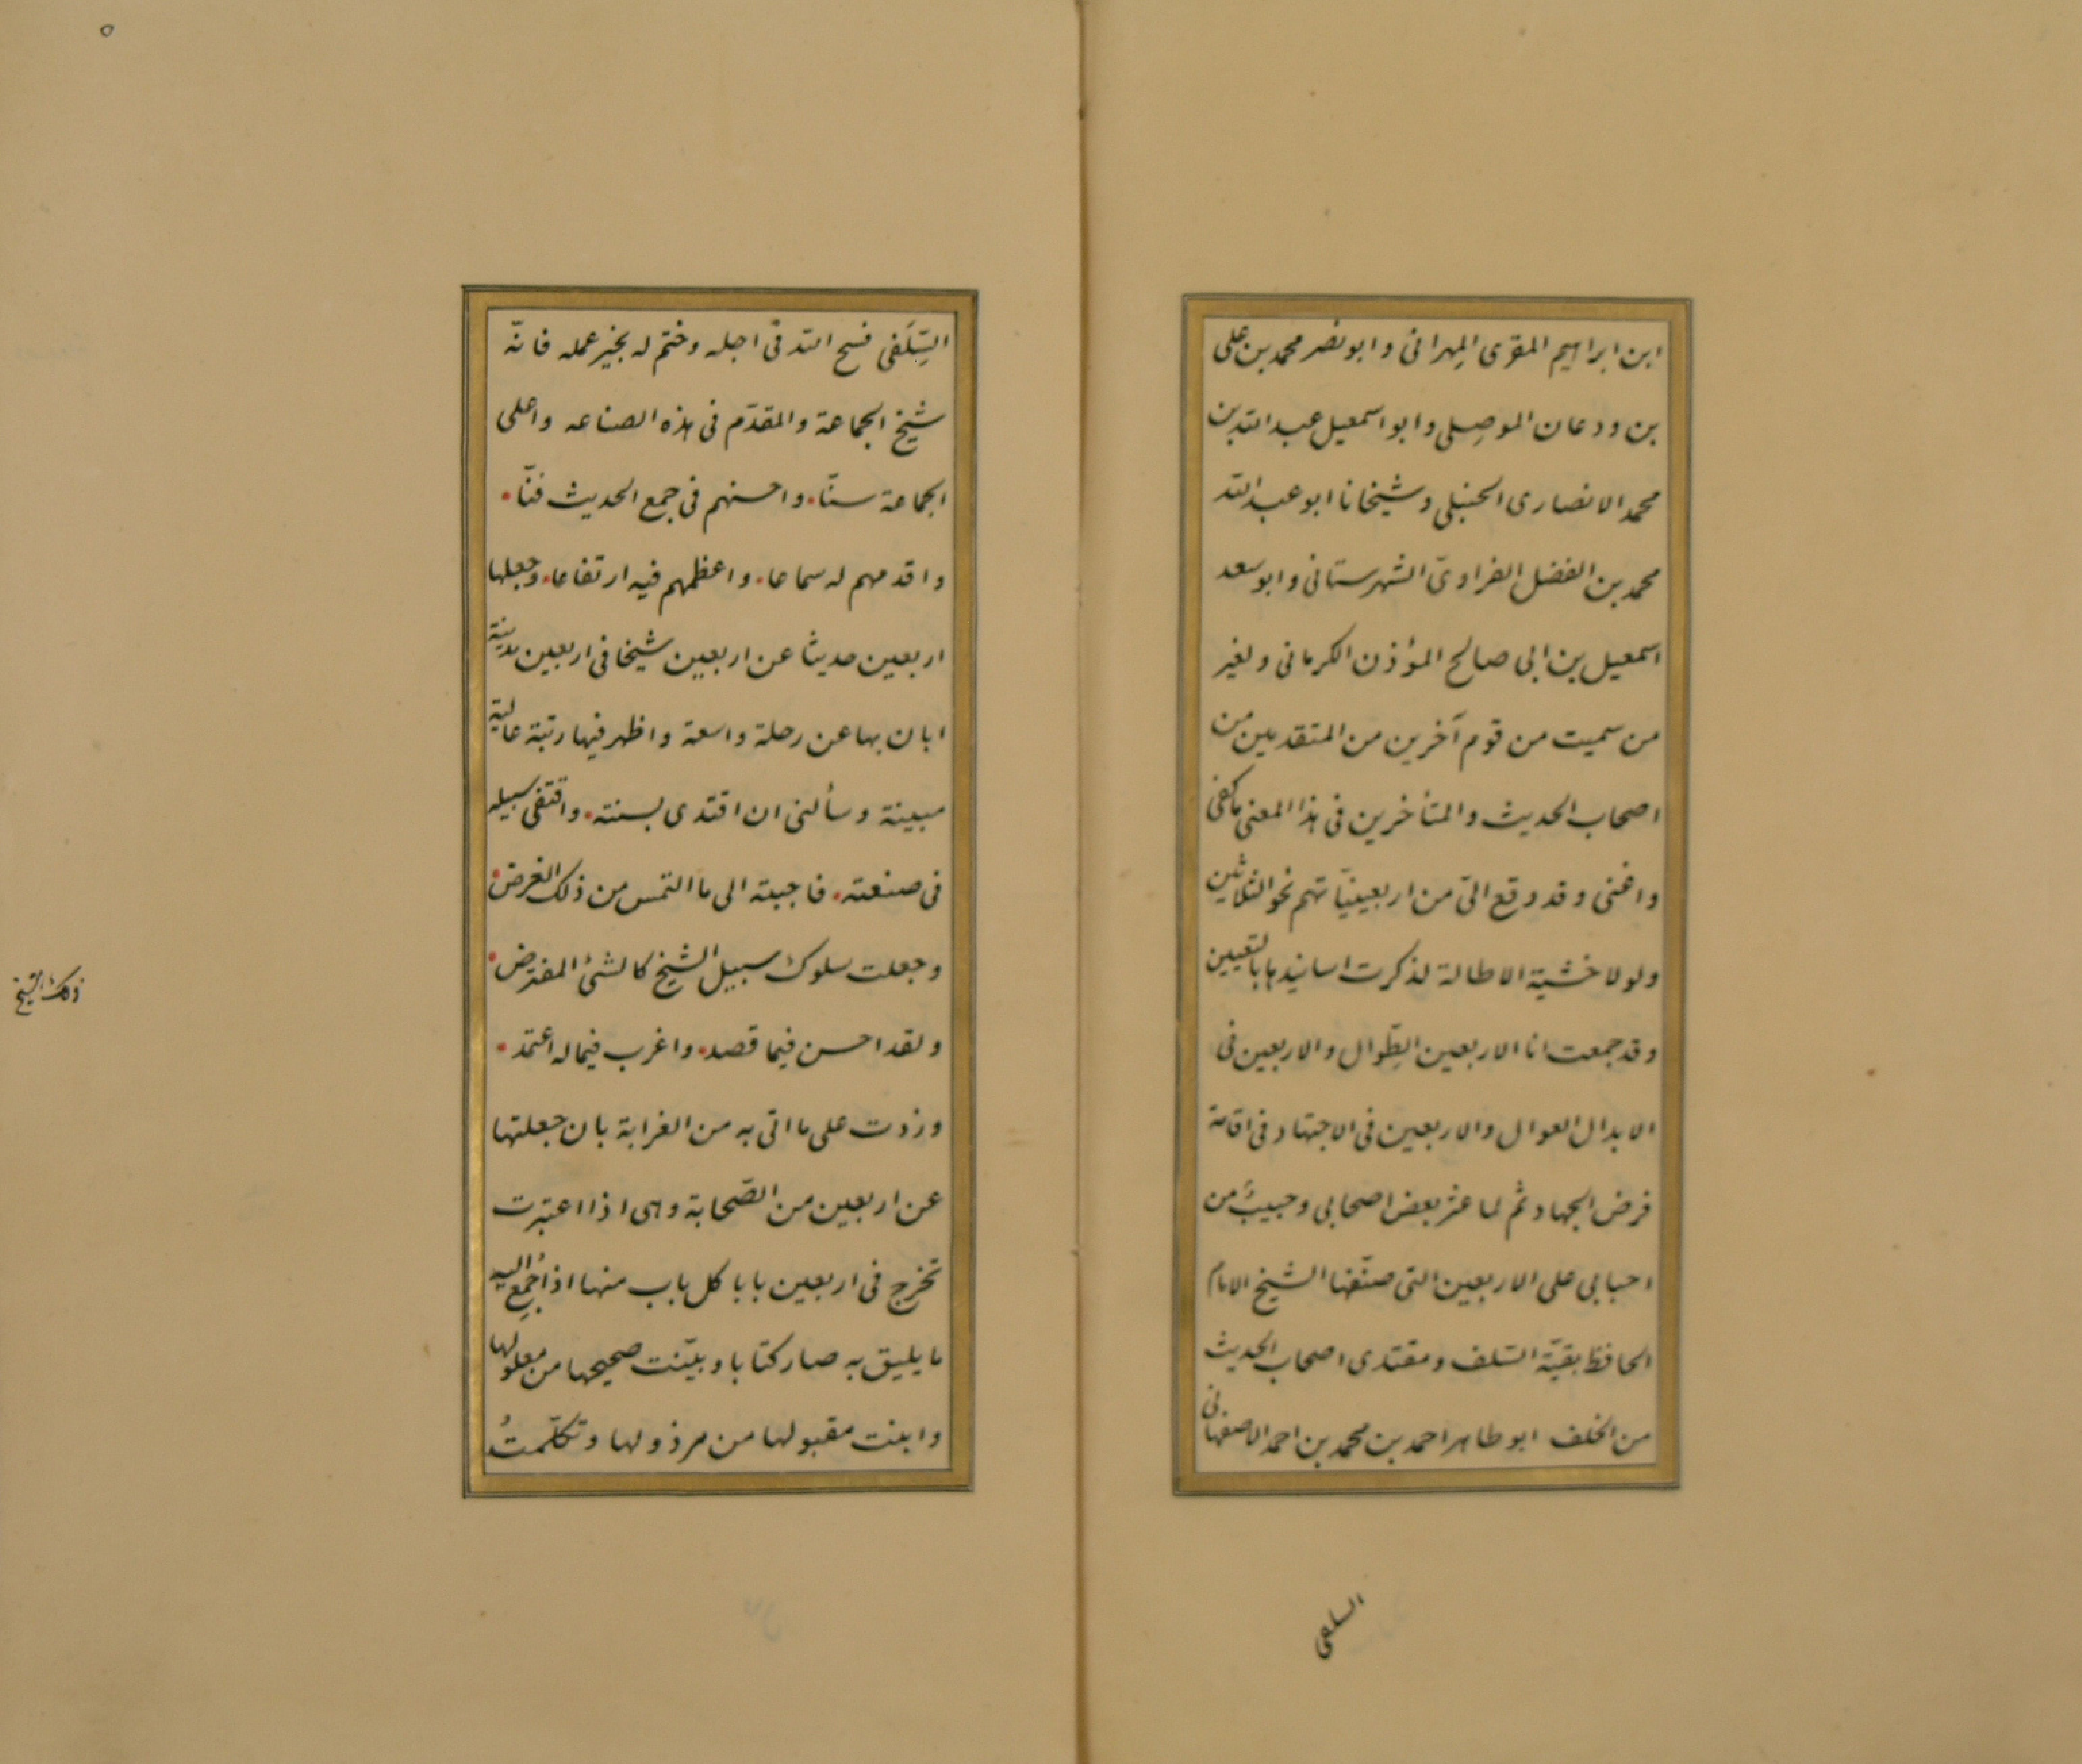 ابن ابراهيم المقرى المِهرانى وابو نصر محمد بن على
بن ودعان الموصِلى وابو اسمعيل عبد الله بن
محمد الانصارى الحنبلى وشيخانا ابو عبد الله
محمد بن الفضل الفراوىّ الشهرستانى وابو سعد
اسمعيل بن ابى صالح المؤذن الكرمانى ولغير
من سميت من قوم آخرين من المتقدمين من
اصحاب الحديث والمتأخرين فى هذا المعنى ما كفى
واغنى وقد وقع الىّ من اربعينيّاتهم نحو الثلاثين
ولولا خشية الاطالة لذكرت اسانيدها بالتعيين
وقد جمعت انا الاربعين الطِّوال والاربعين فى
الابدال العوال والاربعين فى الاجتهاد فى اقامة
فرض الجهاد ثم لما عثر بعض اصحابى وحبيبٌ من
احبابى على الاربعين التى صنّفها الشيخ الامام
الحافظ بقيّة السّلف ومقتدى اصحاب الحديث
من الخلف ابو طاهر احمد بن محمد بن احمد الاصفهانى
السلفى
٥
السِّلَفى فسح الله فى اجله وختم له بخير عمله فانّه
شيخ الجماعة والمقدّم فى هذه الصناعه واعلى
الجماعة سنّا. واحسنهم فى جمع الحديث فنّا.
واقدمهم له سماعا. واعظمهم فيه ارتفاعا. وجعلها
اربعين حديثا عن اربعين شيخا فى اربعين مدينة
ابان بها عن رحلة واسعة واظهر فيها رتبة عالية
مبينة وسألنى ان اقتدى بسنته. واقتفى سبيله
فى صنعته. فاجبته الى ما التمس من ذلك الغرض.
وجعلت سلوك سبيل الشيخ كالشئ المفترض.
ذلك الشيخ
ولقد احسن فيما قصد. واغرب فيما له اعتمد.
وزدت على ما اتى به من الغرابة بان جعلتها
عن اربعين من الصّحابة وهى اذا اعتبرت
تخرج فى اربعين بابا كل باب منها اذا جُمِع اليه
ما يليق به صار كتابا وبيّنت صحيحها من معلولها
وابنت مقبولها من مرذولها وتكلّمتُ